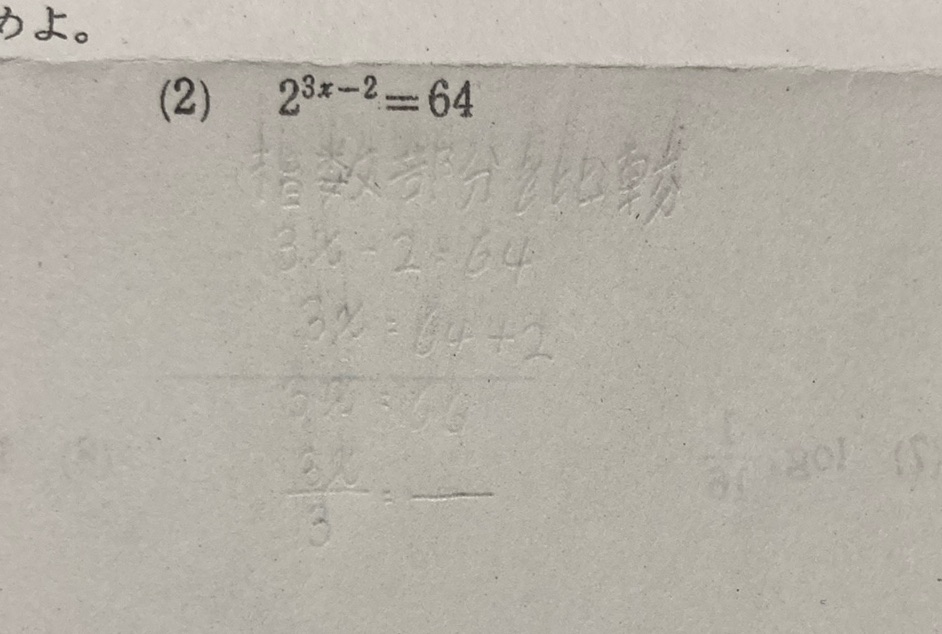 めよ。
(2) 2^{3x-2} = 64
指数部分を比較
3x - 2 = 64
3x = 64 + 2
3x = 66
3x/3 =
(2) log 1/16